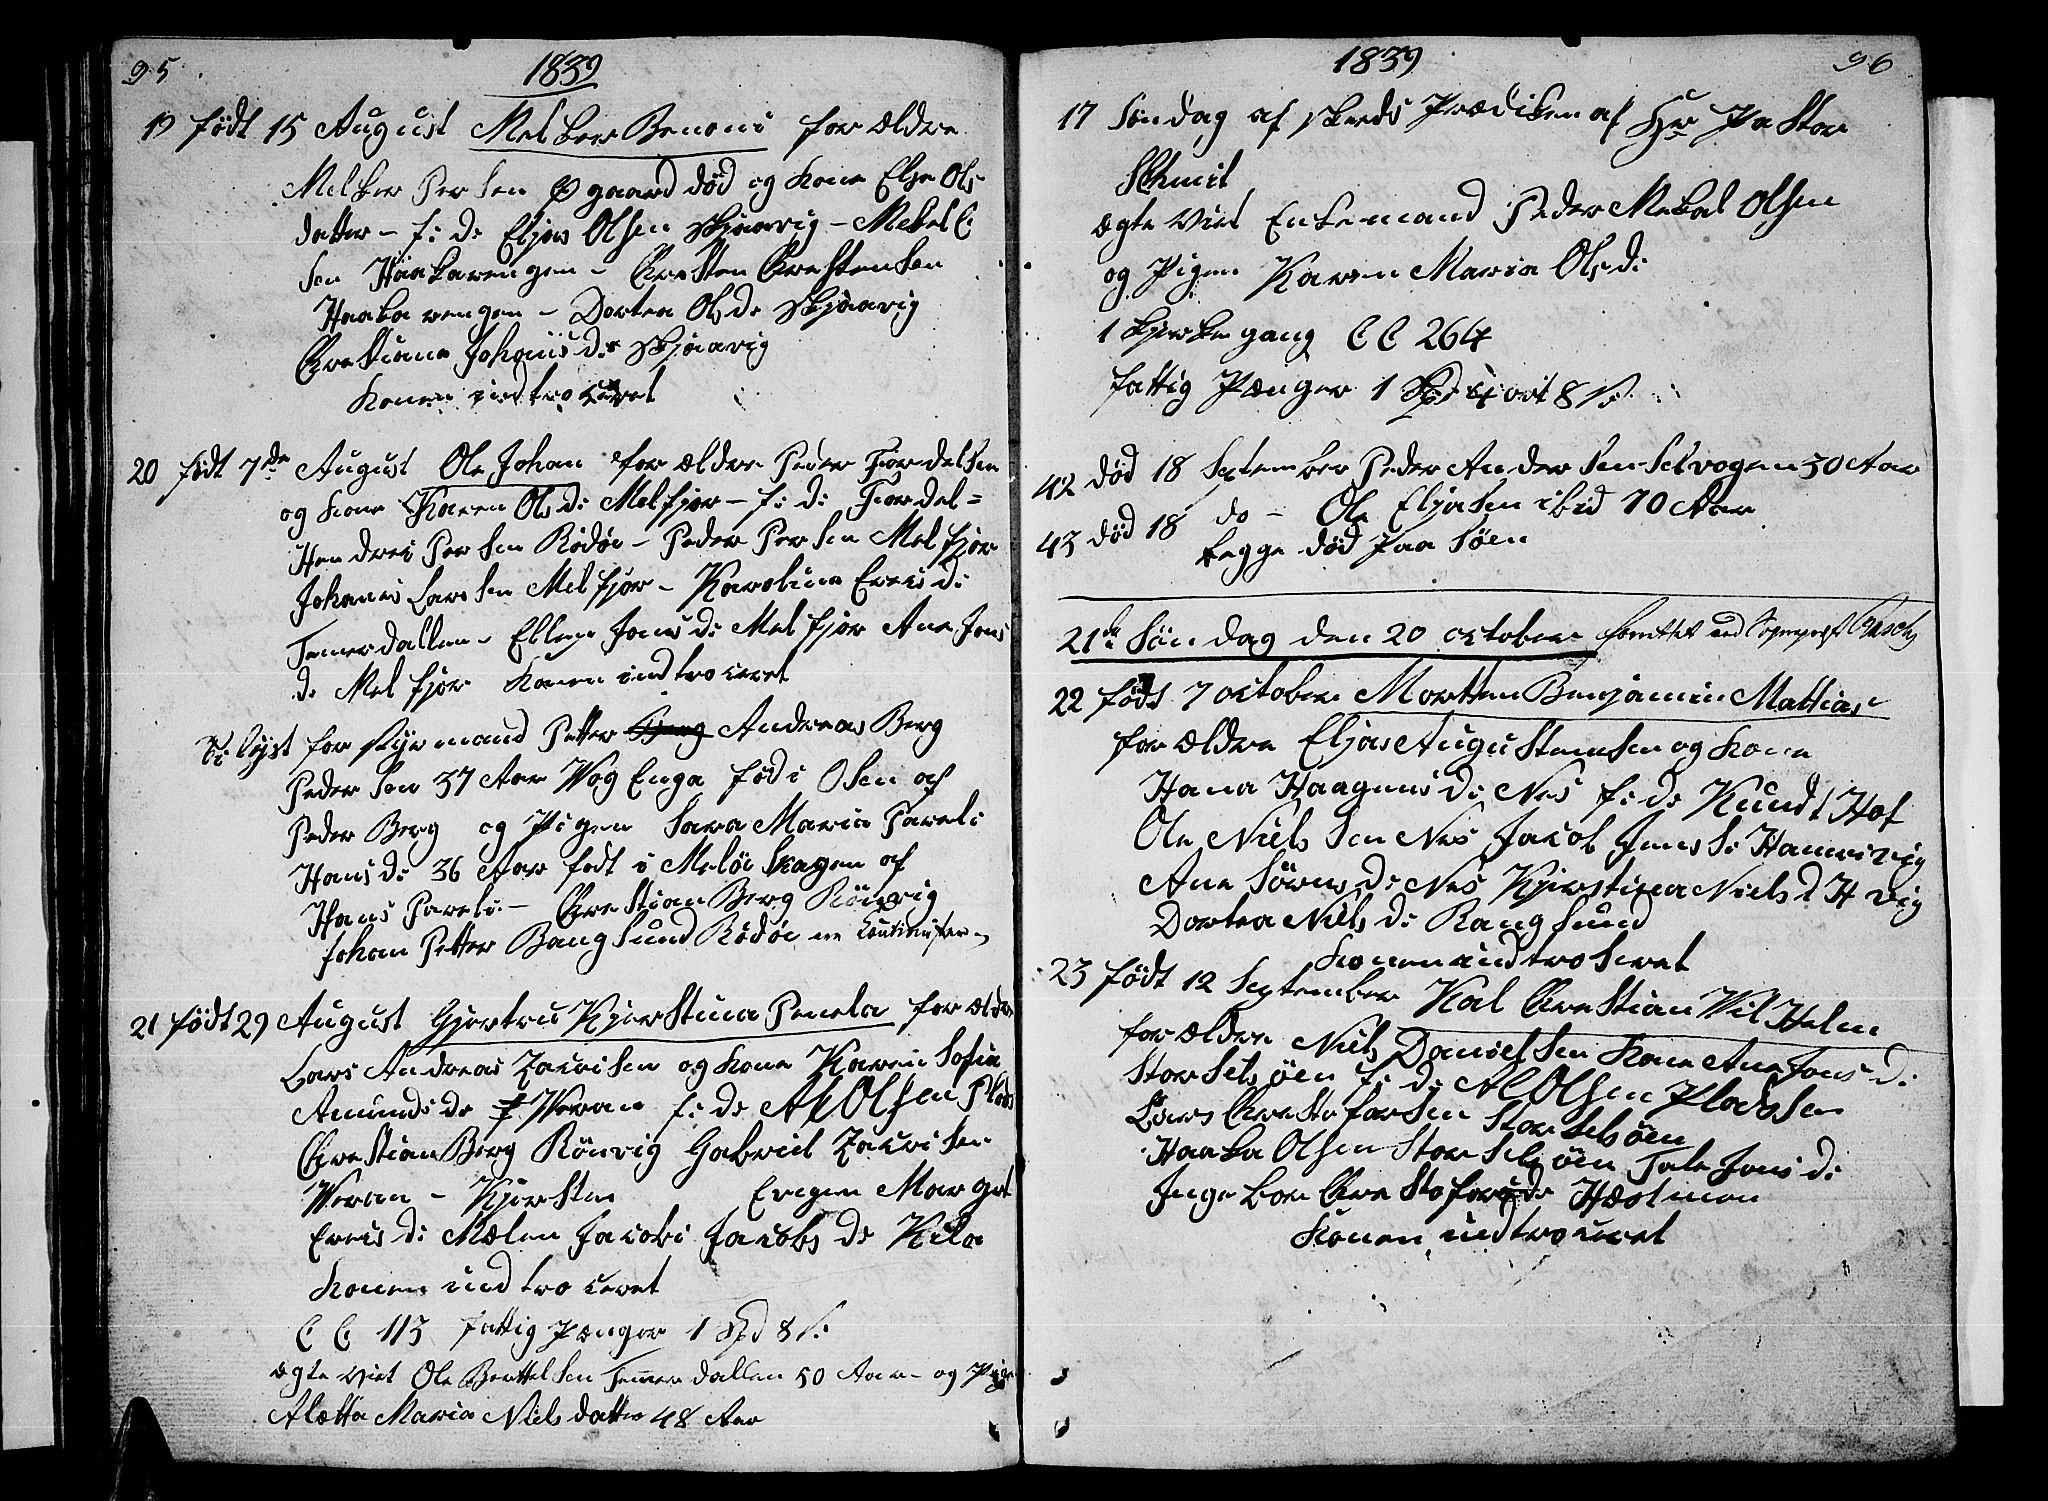 95
1839
19 født 15 August Melker Benoni forældre
Melker Persen Øgaard død og kone Else Ols
datter - f: d: Eljas Olsen Skjaavig - Mekel C
sen Haakarengen - Chresten Chrestensen
Haaka rengen - Dortea Ols d: Skjaavig
Chrestiana Johanis d: Skjaavig
konen introduceret
20 født 7de August Ole Johan forældre Peder Tordelsen
og kone Karen Ols d: Melfjor - f: d: Tordel=
Hendrei Persen Rödöe - Peder Persen Melfjor
Johanes Larssen Melfjor - Karolina Ereks d:
Temerdallen - Ellen Jons d: Melfjor Ane Jons
d: Melfjor konen introduceret
Ti lyst for Styrmand Petter Berg Andreas Berg
Pedersen 37 Aar Wog Enga föd i Osen af
Peder Berg og Pigen Sara Maria Pareli
Hans d: 36 Aar født i Melöe Skagen af
Hans Pareli - Chrestian Berg Rönvig
Johan Petter Bangsund Rödöe
21 født 29 August Gjertru Kjerstina Penela forældre
Lars Andreas Zakrisen og kone Karen Sofia
Amunds de Weran f: d: A Olsen
Chrestian Berg Rönvig Gabriel Zakrisen
Weran - Kjersten Evegen Margrt
Ereks d: Mælen Jacobi Jacobs d: Kila
konen introduceret
C C 113 fattig Pænger 1 Spd 8 s:
ægte viet Ole Berttelsen Temmerdallen 50 Aar - og Pige
Alætta Maria Niels datter 48 Aar
1839
96
17 Søndag af skeds Prædiken af Hr Pastor
Schmit
ægte viet Enkemand Peder Mekal Olsen
og Pigen Karen Maria Ols d:
1 kjerke gang C C 264
fattig Pænger 1 Spd 4 ort 8 s:
42 død 18 September Peder Andersen Selvogen 30 Aar
43 død 18 do - Ole Eljasen ibid 70 Aar
begge død paa Søen
21de Søndag den 20 october forrettet ved Sogneprest
22 født 7 october Morten Benjamin Mattias
forældre Eljas Augustinusen og kone
Hana Haagens d: Nes f: d: Kundt Hof
Ole Nielsen Nes Jakob Jenss: Hamnvig
Ane Sörns d: Nes Kjerstina Niels d H vig
Dortea Niels d: Rangsund
konen introduseret
23 født 12 September Kal Chrestian Wilhelm
forældre Niels Danielsen kone Ane Jons d:
Stor Selsöen f: d: A Olsen
Lars Chrestofersen Stor Selsöen
Haaka Olsen Stor Selsöen Tale Jons d:
Ingebor Chrestofers d: Hæstmon
konen introduceret